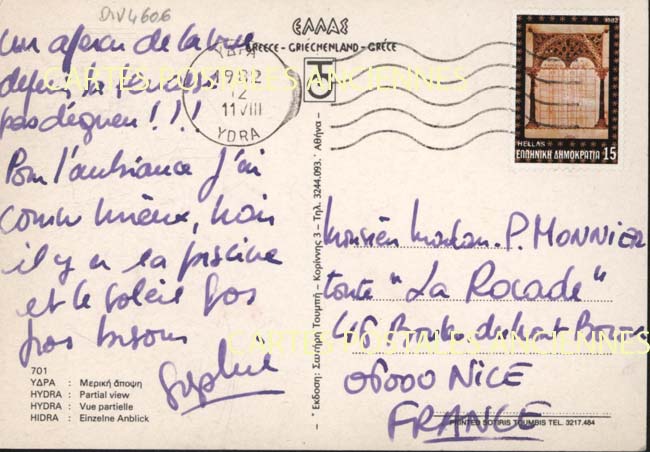 DIV4606
ΕΛΛΑΣ
GREECE - GRIECHENLAND - GRÈCE
Un aperçu de la vue
depuis la
pas dégueu!!!
Pour l'ambiance j'ai
connu mieux, mais
il y a la piscine
et le soleil gros
gros bisous
Sophie
ΥΔΡΑ
1982
12
11 VIII
YDRA
1982
HELLAS
ΕΛΛΗΝΙΚΗ ΔΗΜΟΚΡΑΤΙΑ 15
Monsieur Madame P. MONNIER
"La Rocade"
06000 NICE
FRANCE
701
ΥΔΡΑ : Μερική άποψη
HYDRA : Partial view
HYDRA : Vue partielle
HIDRA : Einzelne Anblick
* Έκδοση: Σωτήρη Τουμπή - Κορίννης 3 - Τηλ. 3244.093. * Αθήνα -
PRINTED SOTIRIS TOUMBIS TEL. 3217.484
CARTES POSTALES ANCIENNES
CARTES POSTALES ANCIENNES